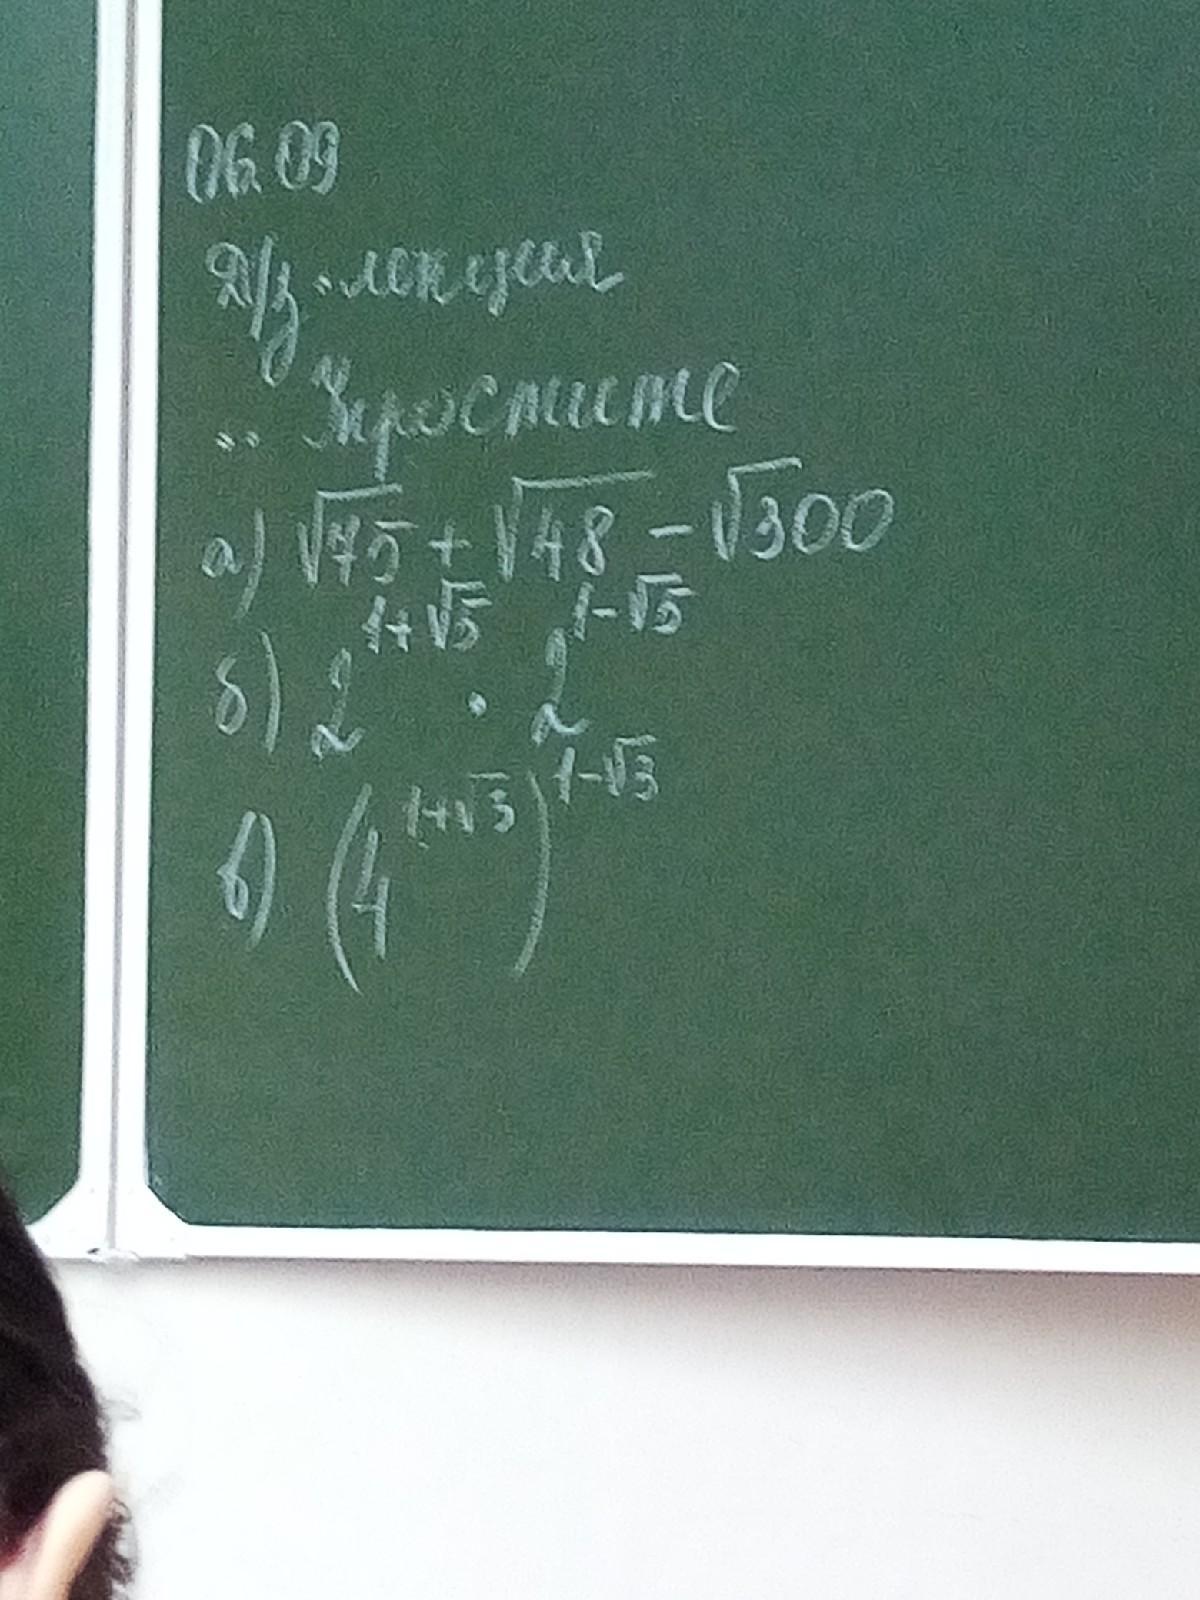 06.09
Д/з • лекция
•• Упростите
а) √75 + √48 - √300
б) 2^(1+√5) · 2^(1-√5)
в) (4^(1+√3))^(1-√3)